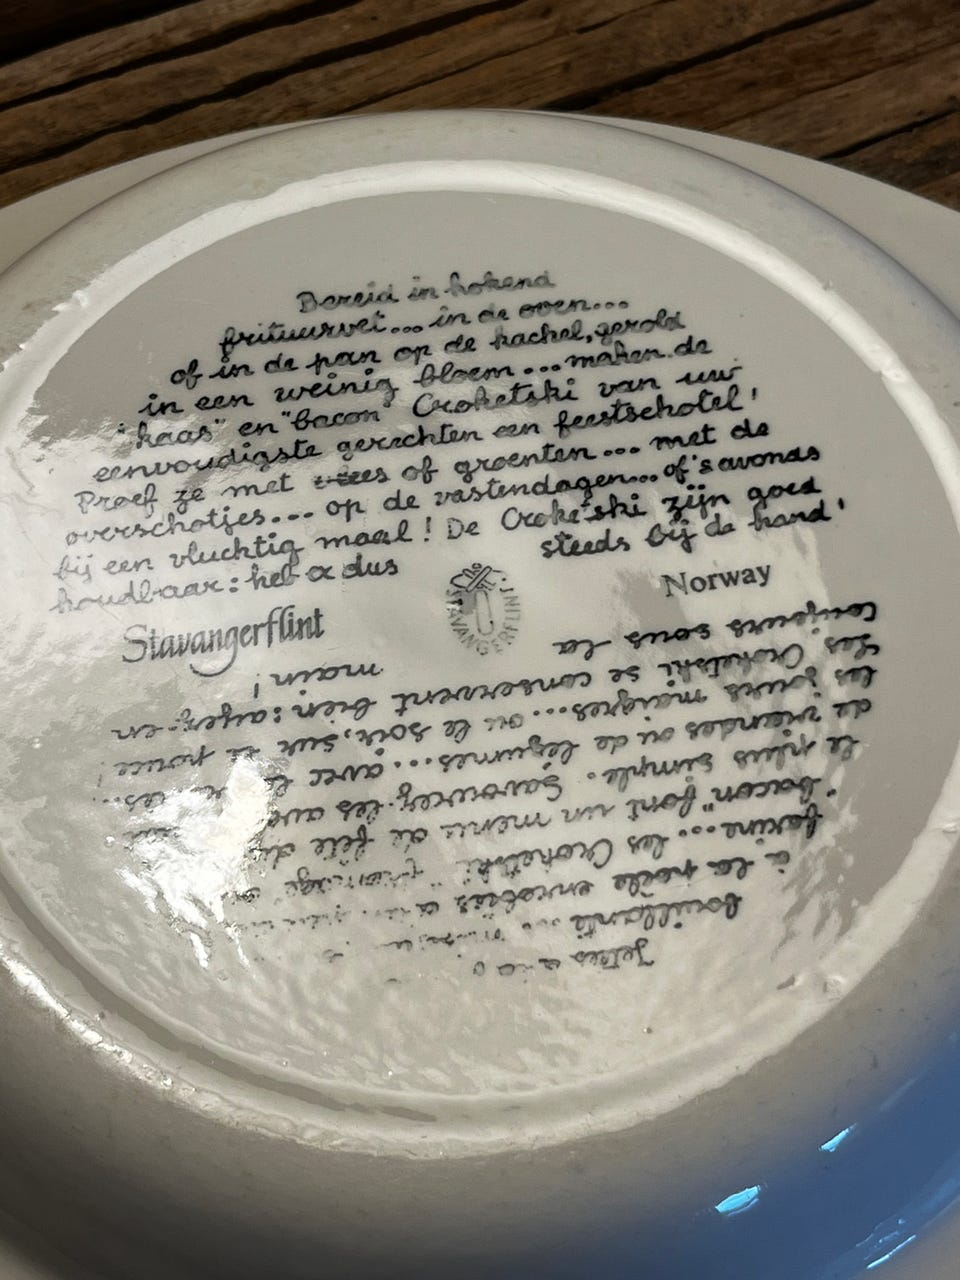 Bereid in kokend
frituurvet... in de oven...
of in de pan op de kachel, gerold
in een weinig bloem... maken de
"kaas" en "bacon" Croketski van uw
eenvoudigste gerechten een feestschotel!
Proef ze met vlees of groenten... met de
overschotjes... op de vastendagen... of 's avonds
bij een vluchtig maal! De Croketski zijn goed
houdbaar: heb ze dus steeds bij de hand!
Stavangerflint
STAVANGERFLINT
Norway
Jetées
bouillante
à la poêle enrobés
farine... les Croketski "fromage"
"bacon" font un menu de fête du
le plus simple. Savourez-les avec
de viandes ou de légumes... avec
les jours maigres... ou le soir, sur le pouce!
Les Croketski se conservent bien: ayez-en
toujours sous la main!